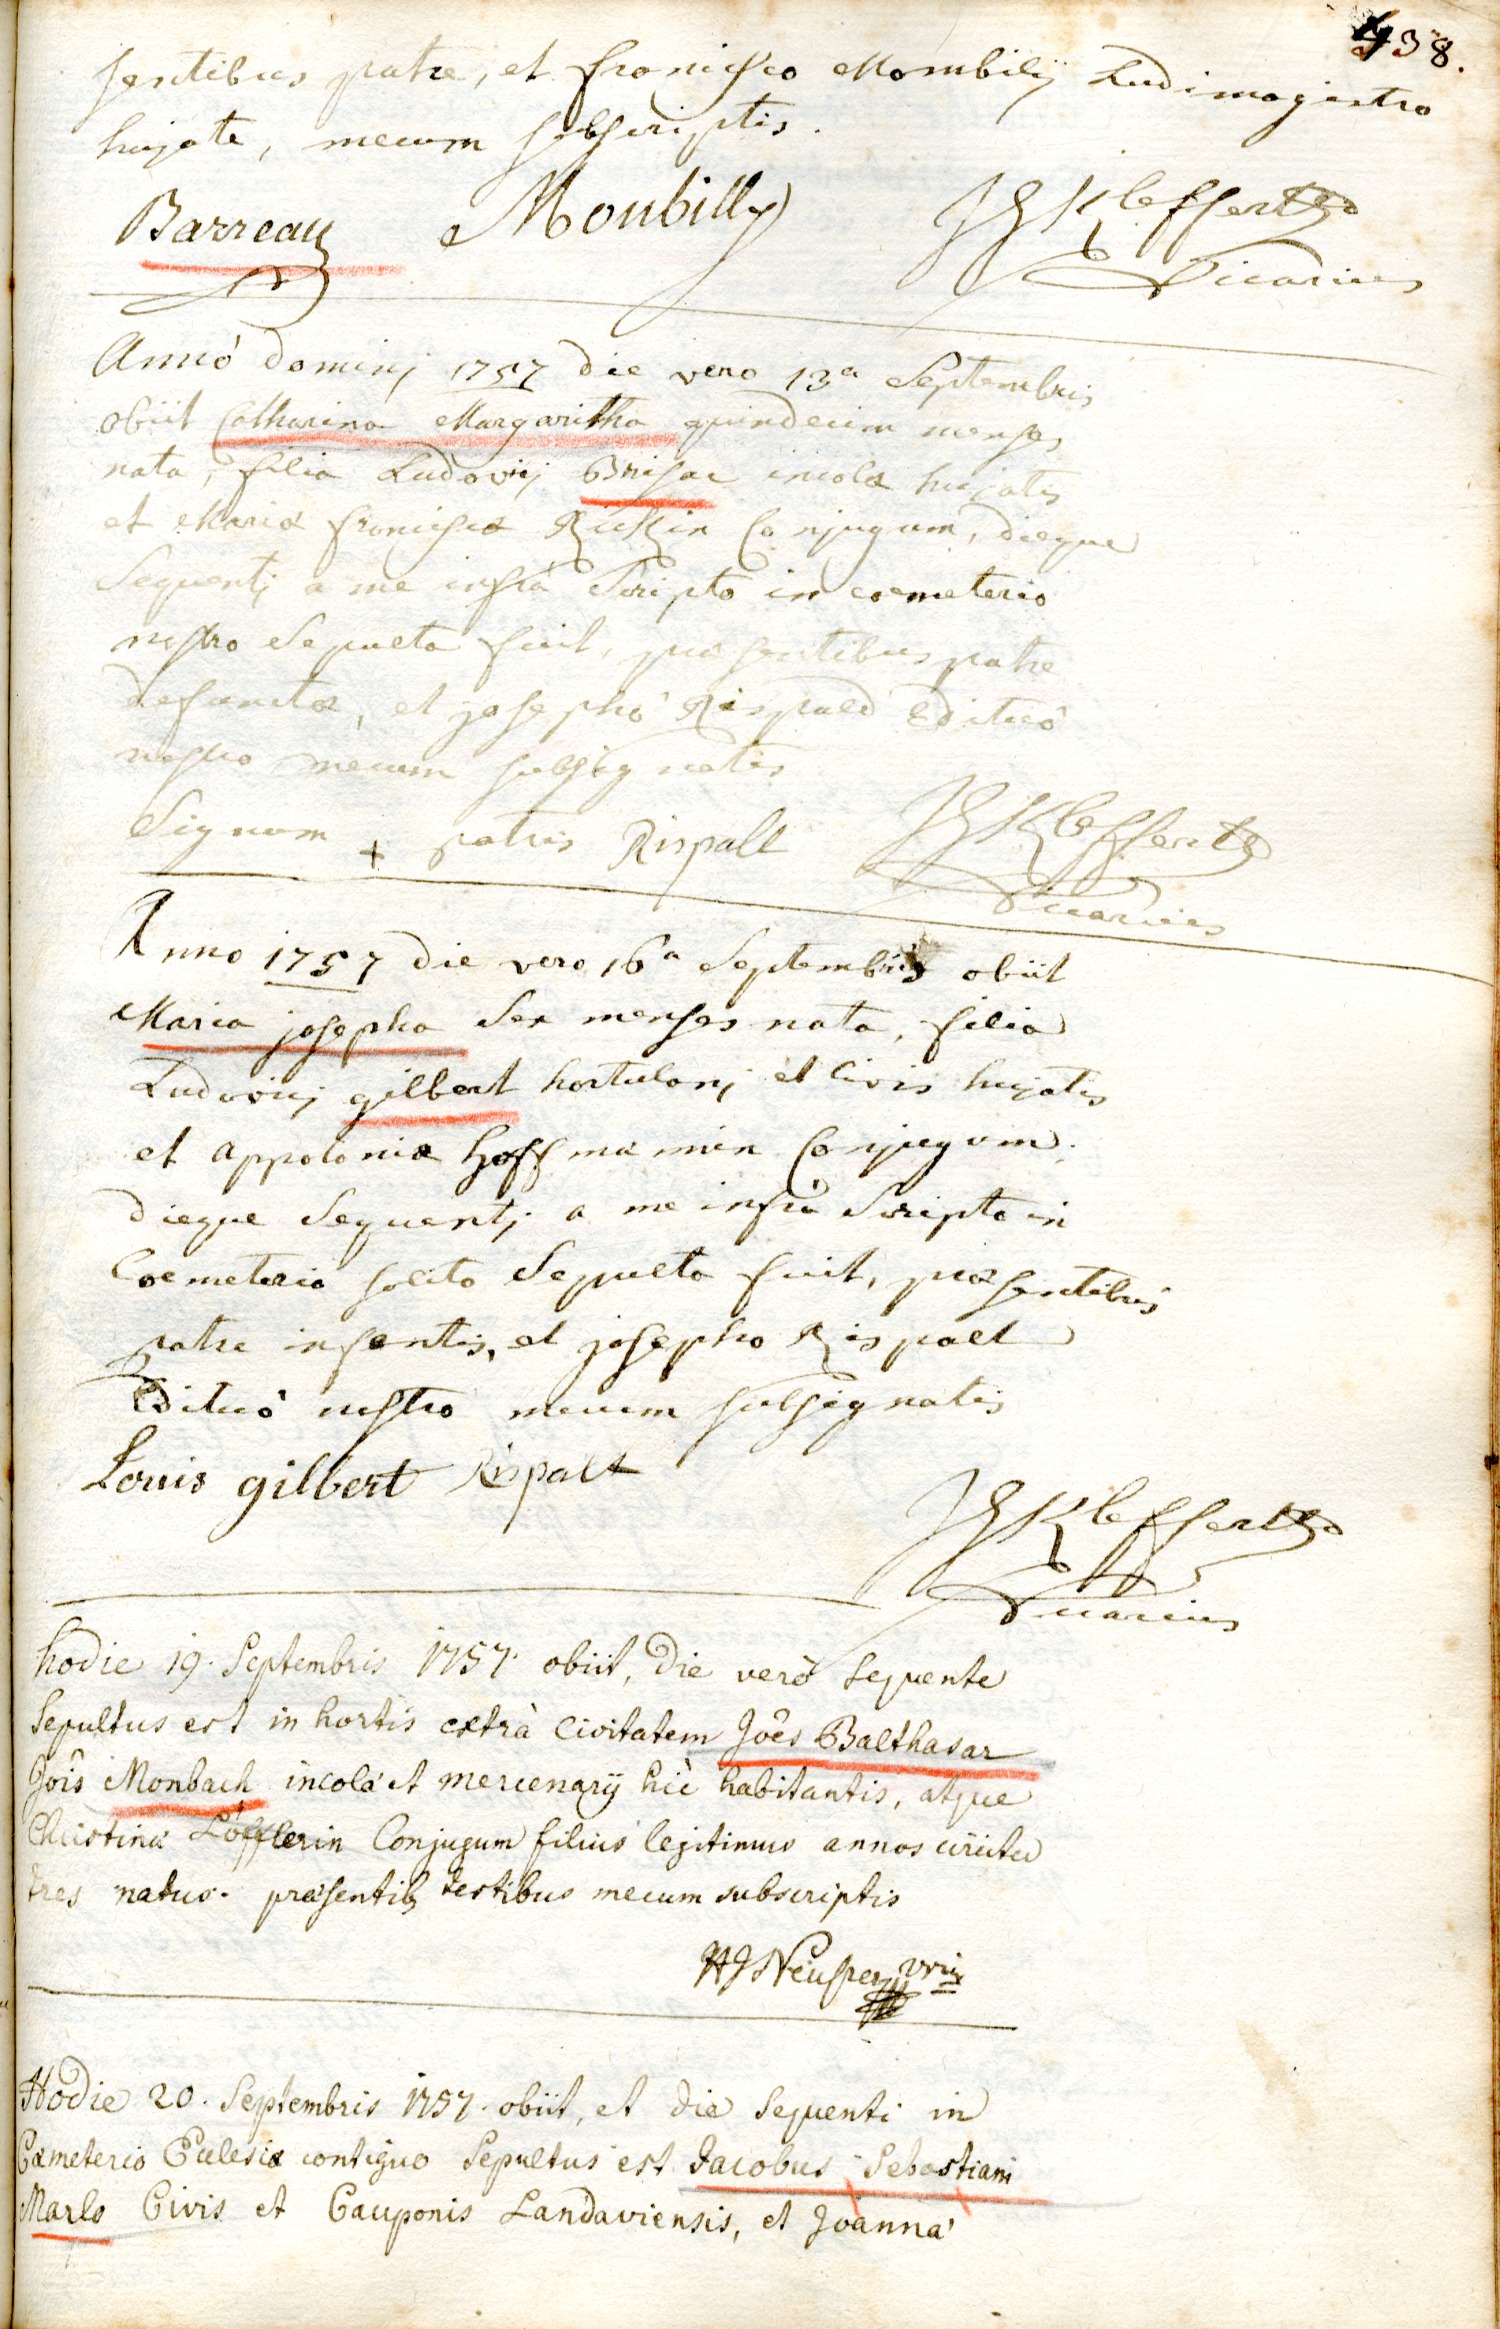 438.
sentibus patre, et francisco Mombily Ludimagistro
hujate, mecum subscriptis.
Barreau Monbilly JGKleffertz
Vicarius
Anno dominj 1757 die vero 13a Septembris
obiit Catharina Margaritha quindecim menses
nata, filia Ludovicj Brisac incolæ hujatis
et Mariæ franciscæ Conjugum, dieque
Sequentj a me infrà Scripto in coemeterio
nostro Sepulta fuit, præsentibus patre
defunctæ, et josephó Rispald Edituó
nostro mecum subsignatis
Signum + patris Rispalt JGKleffertz
Vicarius
Anno 1757 die vero 16a Septembris obiit
Maria josepha Sex menses nata, filia
Ludovicj gilbert hortulanj et Civis hujatis
et appoloniæ hoffmännin Conjugum.
dieque Sequentj a me infrà Scripto in
Coemeterio solito Sepulta fuit, præsentibus
patre infantis, et josepho Rispalt
Edituó nostro mecum subsignatis
Louis gilbert Rispalt
JGKleffertz
Vicarius
hodie 19. Septembris 1757. obiit, die verò sequente
Sepultus est in hortis extrà Civitatem Joês Balthasar
Joîs Monbach incolæ et mercenarÿ hic habitantis, atque
Christinæ Löfflerin Conjugum filius legitimus annos circiter
tres natus. præsentib testibus mecum subscriptis
HJNeusser
Hodie 20. Septembris 1757. obiit, et die Sequenti in
Cæmeterio Eclesiæ contiguo Sepultus est Jacobus Sebastiani
Marlo Civis et Cauponis Landaviensis, et Joanna